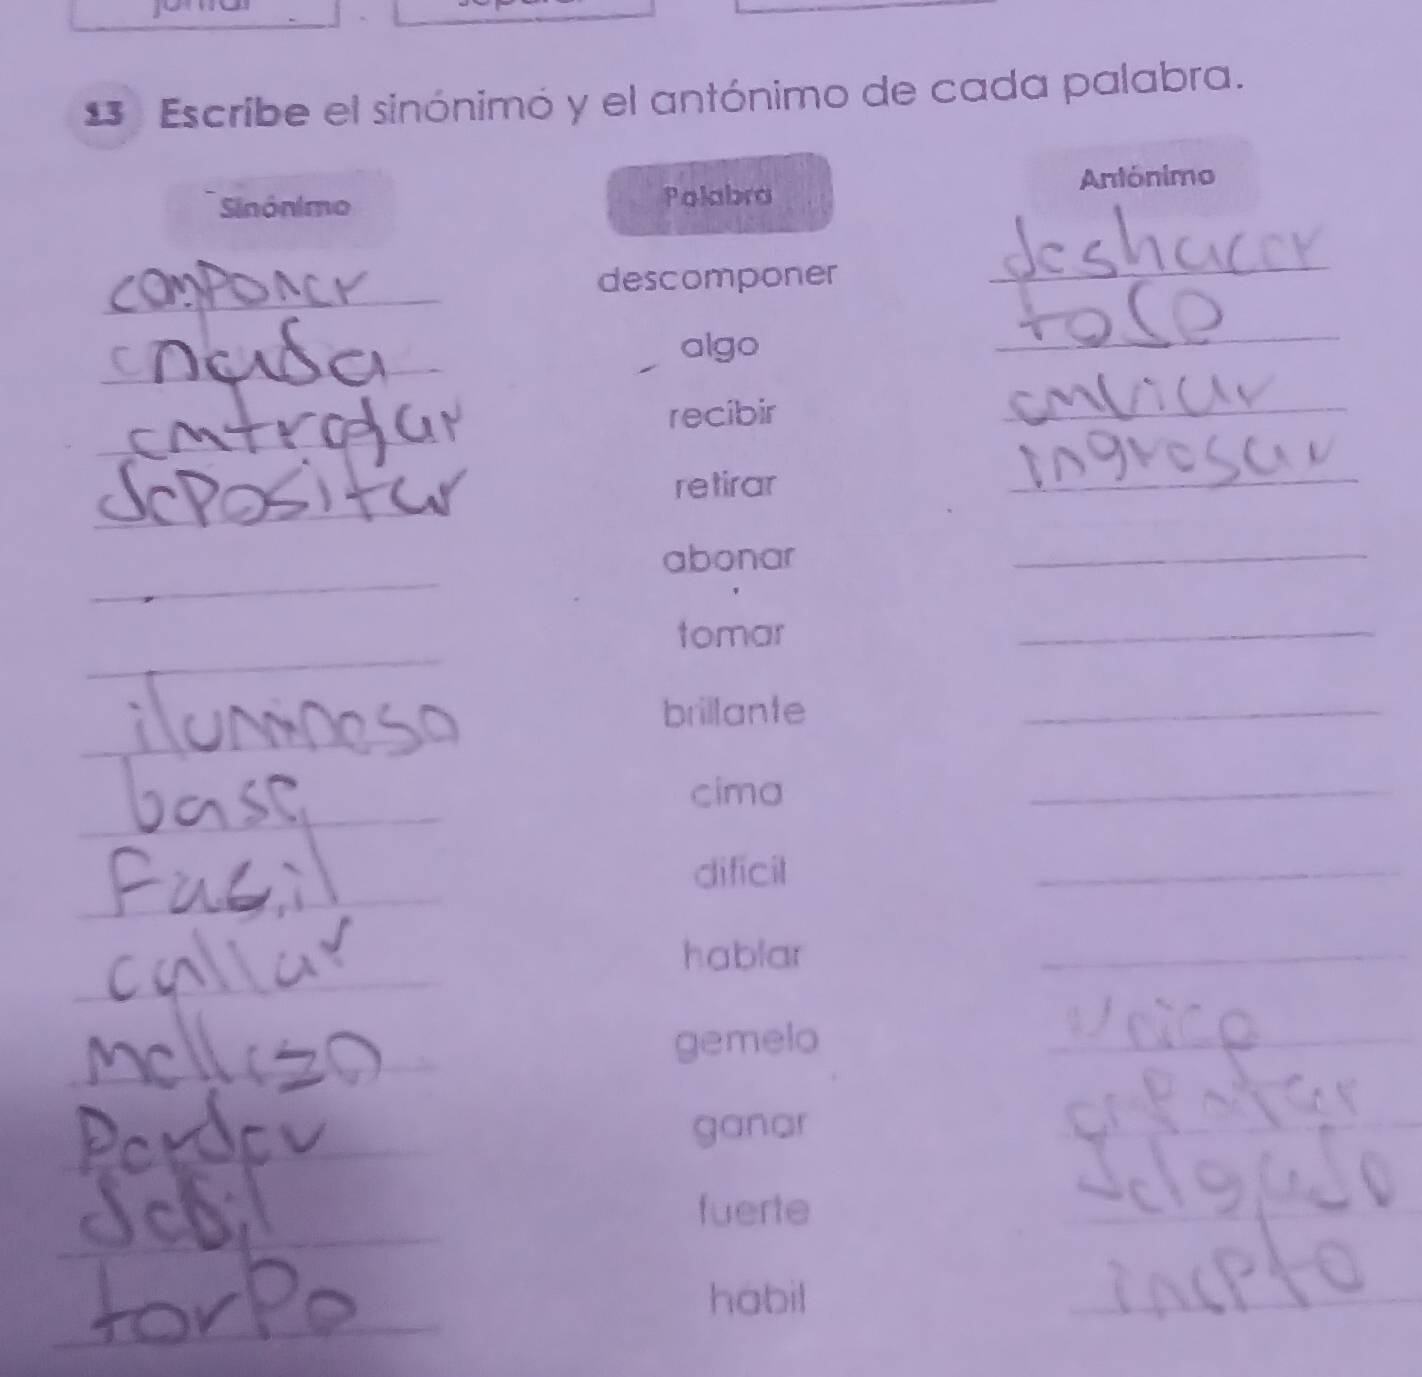 13 Escribe el sinónimo y el antónimo de cada palabra.
Sinónimo Palabra Antónimo
componer descomponer deshacer
algo
recibir enviar
depositar retirar ingresar
abonar
tomar
iluminoso brillante
base cima
Facil difícil
callar hablar
mellizo gemelo
Perder ganar
debil fuerte delgado
torpo hábil inepto